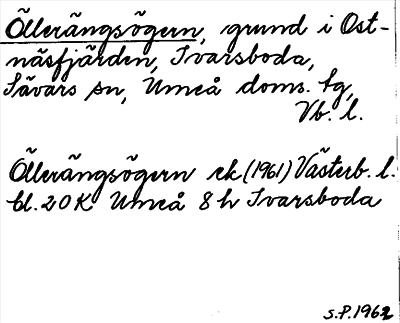 Öllerängsögern, grund i Ost-
näsfjärden, Ivarsboda,
Sävars sn, Umeå doms. tg,
Vb. l.
Öllerängsögern ek (1961) Västerb. l.
bl. 20K Umeå 8h Ivarsboda
S.P. 1962